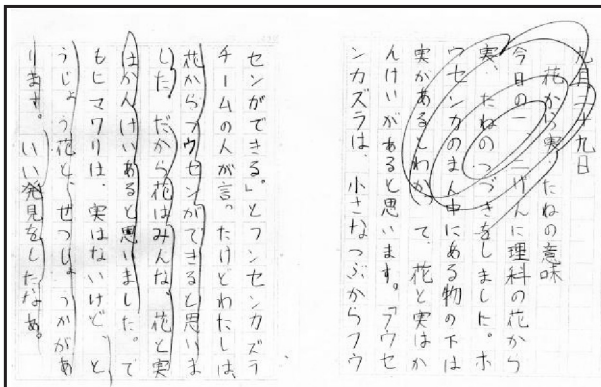 九月二十九日
花から実、たねの意味
今日の一、二げんに理科の花から
実、たねのつづきをしました。ホ
ウセンカのまん中にある物の下は
実があるとわかって、花と実はか
んけいがあると思います。「フウセ
ンカズラは、小さなつぶからフウ
センができる。」とフンセンカズラ
チームの人が言ったけどわたしは、
花からフウセンができると思いま
した。だから花はみんな。花と実
はかんけいあると思いました。で
もヒマワリは、実はないけど、と
うじょう花と、ぜつじょうかがあ
ります。いい発見をしたなあ。